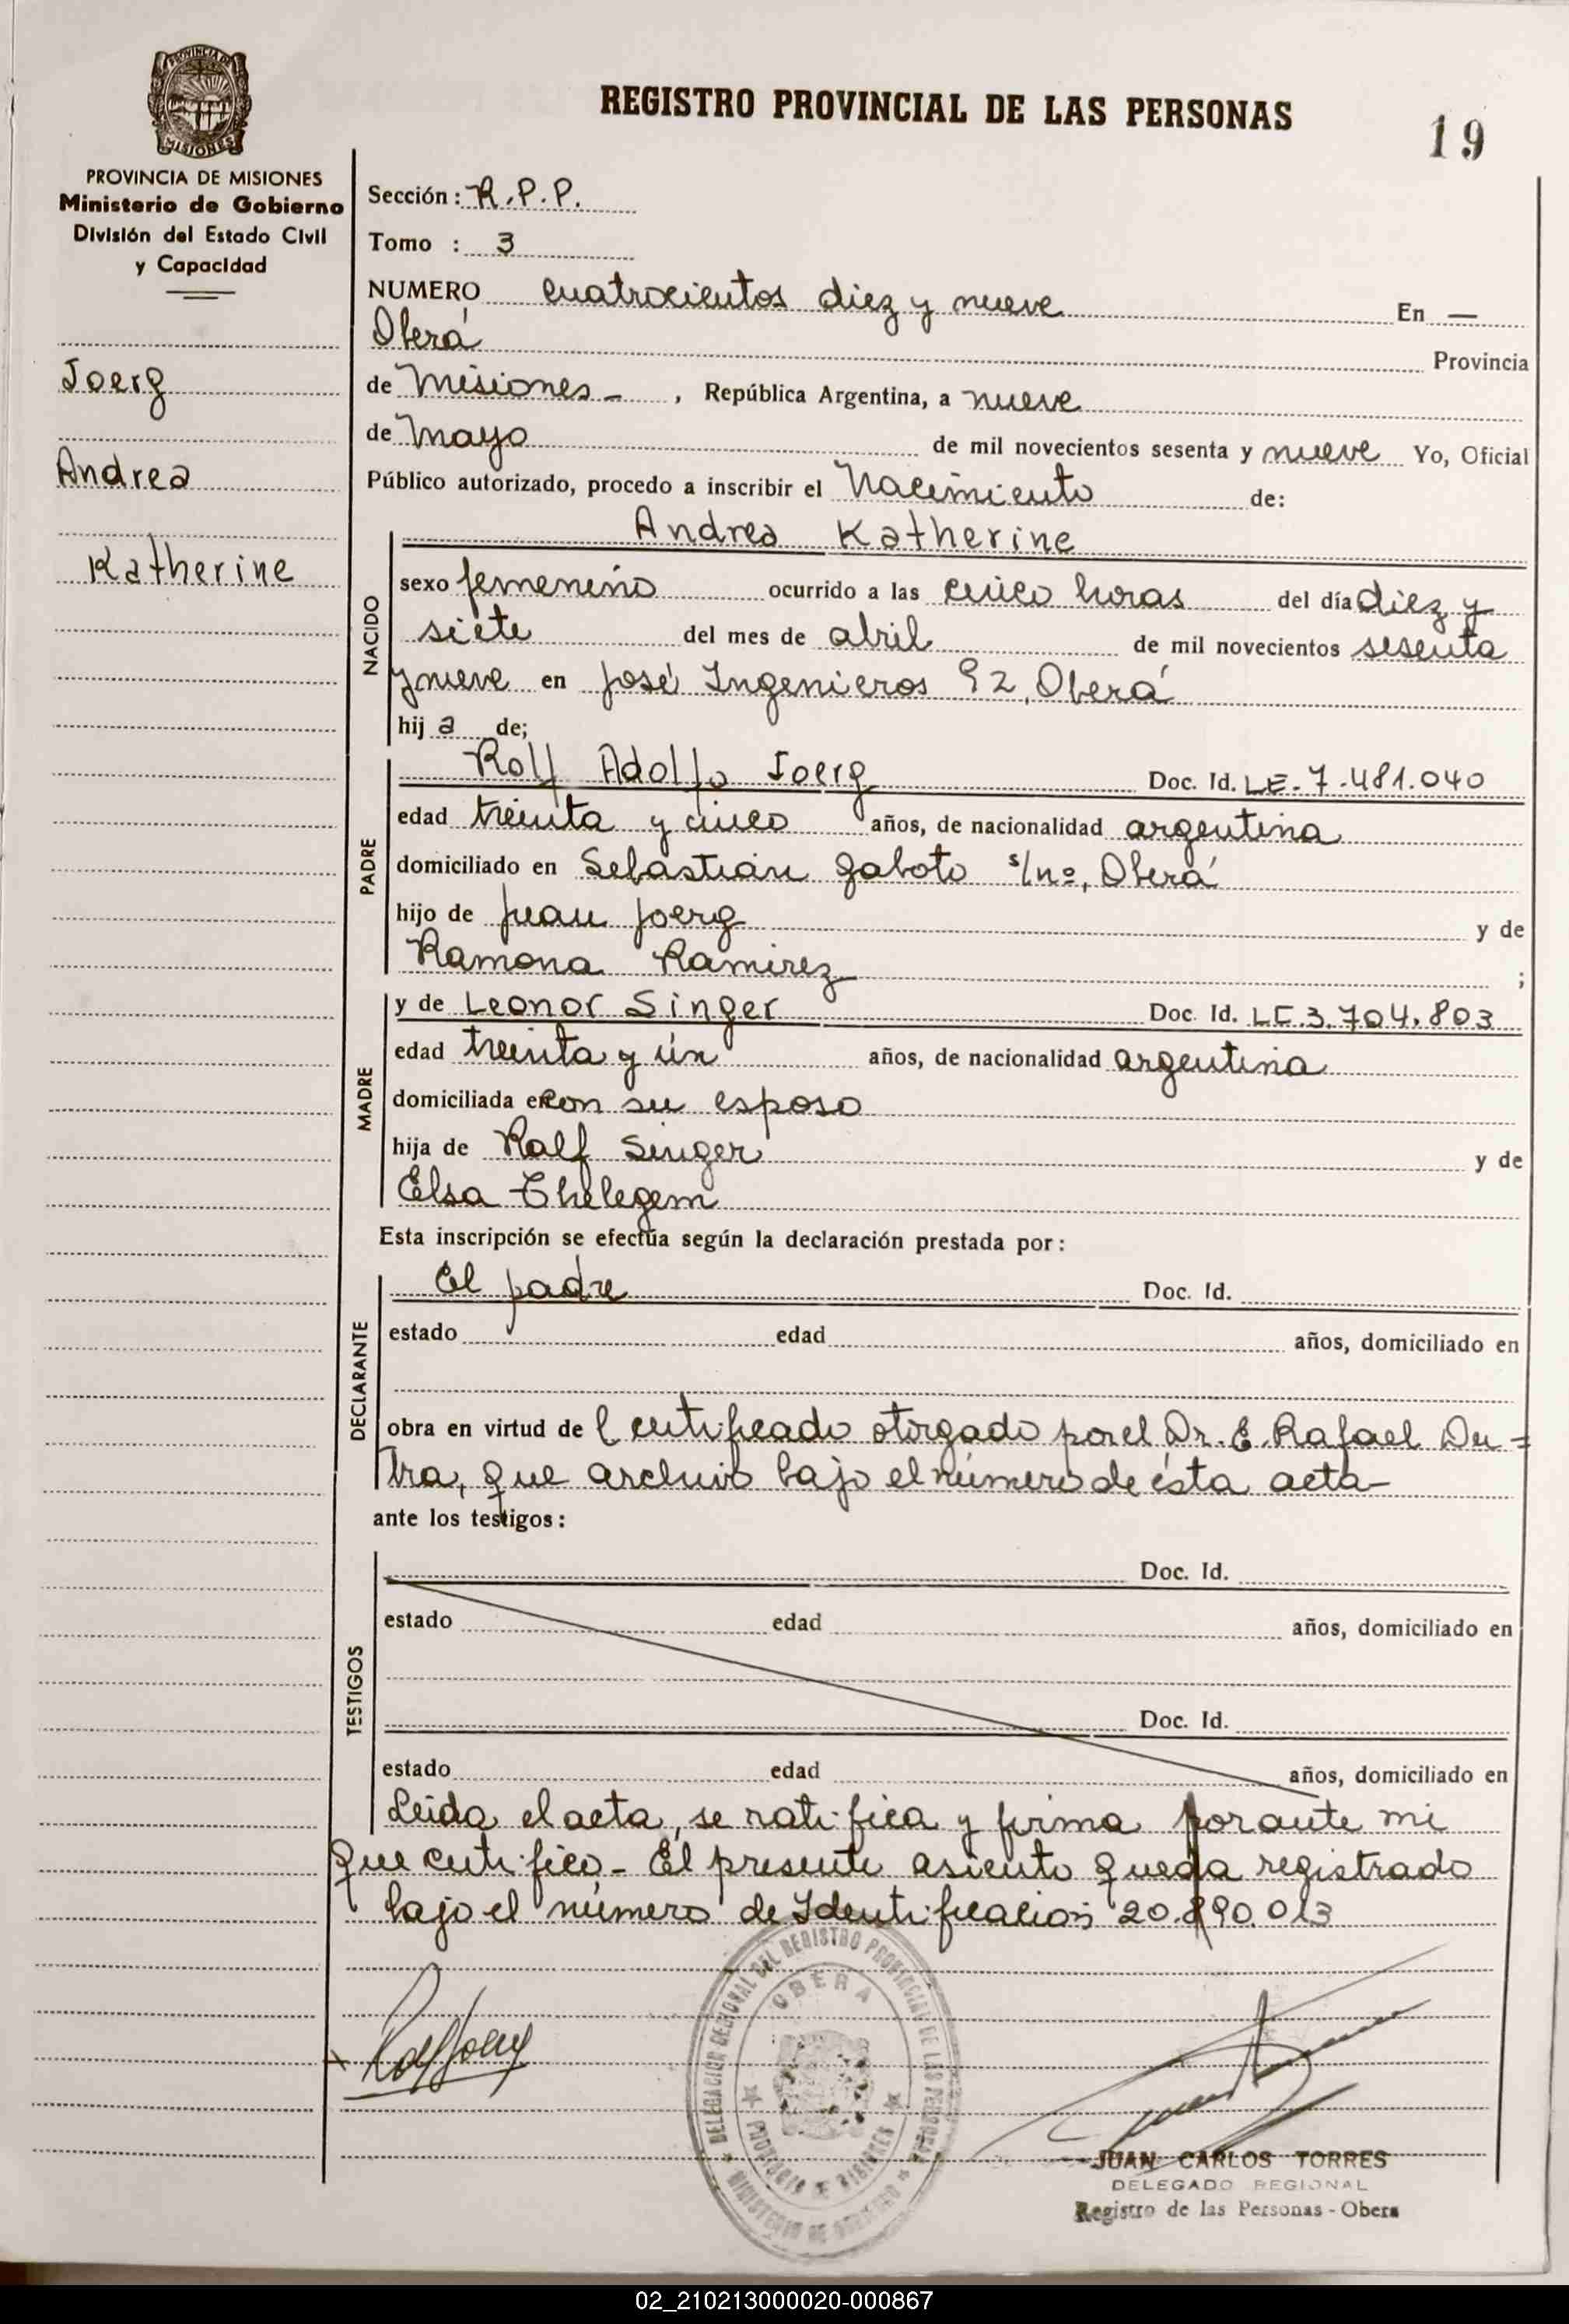 PROVINCIA DE
MISIONES
REGISTRO PROVINCIAL DE LAS PERSONAS
19
PROVINCIA DE MISIONES
Ministerio de Gobierno
División del Estado Civil
y Capacidad
Joerg
Andrea
Katherine
Sección: R.P.P.
Tomo : 3
NUMERO cuatrocientos diez y nueve En —
Oberá Provincia
de Misiones - , República Argentina, a nueve
de Mayo de mil novecientos sesenta y nueve Yo, Oficial
Público autorizado, procedo a inscribir el Nacimiento de:
Andrea Katherine
NACIDO
sexo femenino ocurrido a las cinco horas del día diez y
siete del mes de abril de mil novecientos sesenta
y nueve en José Ingenieros 92, Oberá
hij a de;
PADRE
Rolf Adolfo Joerg Doc. Id. LE. 7.481.040
edad treinta y cinco años, de nacionalidad argentina
domiciliado en Sebastián Gaboto s/nº, Oberá
hijo de Juan Joerg y de
Ramona Ramirez ;
MADRE
y de Leonor Singer Doc. Id. LC.3.704.803
edad treinta y ún años, de nacionalidad argentina
domiciliada en con su esposo
hija de Ralf Singer y de
Elsa Thelegem
Esta inscripción se efectúa según la declaración prestada por:
DECLARANTE
El padre Doc. Id.
estado edad años, domiciliado en
obra en virtud de l certificado otorgado por el Dr. E. Rafael Du=
tra, que archivo bajo el número de ésta acta-
ante los testigos:
TESTIGOS
Doc. Id.
estado edad años, domiciliado en
Doc. Id.
estado edad años, domiciliado en
Leida el acta, se ratifica y firma por ante mi
que certifico- El presente asiento queda registrado
bajo el número de Identificación 20.890.013
Rolf Joerg
DELEGACION REGIONAL DEL REGISTRO PROVINCIAL DE LAS PERSONAS
OBERA
PROVINCIA DE MISIONES
MINISTERIO DE GOBIERNO
JUAN CARLOS TORRES
DELEGADO REGIONAL
Registro de las Personas - Obera
02_210213000020-000867